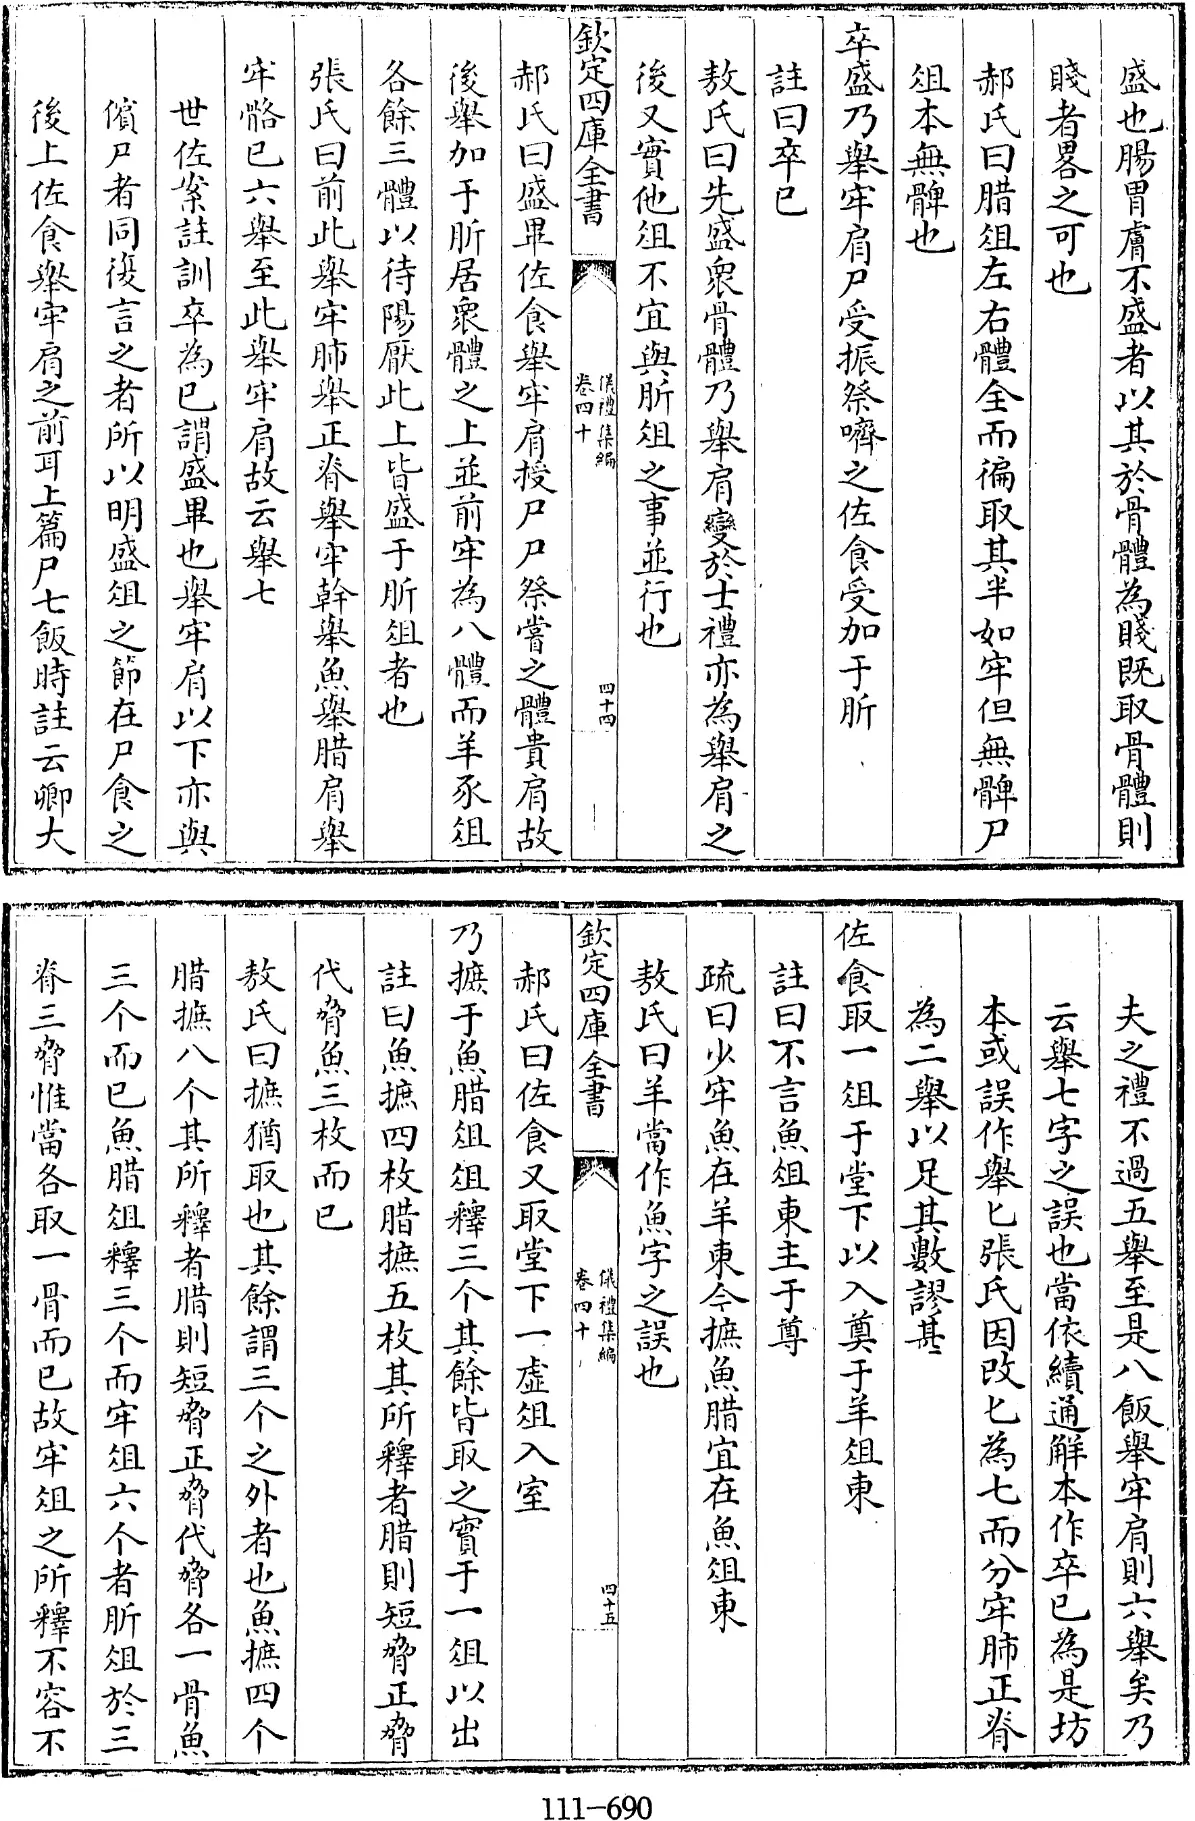 盛也腸胃膚不盛者以其於骨體為賤既取骨體則
賤者畧之可也
郝氏曰腊俎左右體全而徧取其半如牢但無髀尸
俎本無髀也
卒盛乃舉牢肩尸受振祭嚌之佐食受加于肵
註曰卒已
敖氏曰先盛衆骨體乃舉肩變於士禮亦為舉肩之
後又實他俎不宜與肵俎之事並行也
欽定四庫全書
儀禮集編
卷四十
四十四
郝氏曰盛畢佐食舉牢肩授尸尸祭嘗之體貴肩故
後舉加于肵居衆體之上並前牢為八體而羊豕俎
各餘三體以待陽厭此上皆盛于肵俎者也
張氏曰前此舉牢肺舉正脊舉牢幹舉魚舉腊肩舉
牢骼已六舉至此舉牢肩故云舉七
世佐案註訓卒為已謂盛畢也舉牢肩以下亦與
儐尸者同復言之者所以明盛俎之節在尸食之
後上佐食舉牢肩之前耳上篇尸七飯時註云卿大
夫之禮不過五舉至是八飯舉牢肩則六舉矣乃
云舉七字之誤也當依續通解本作卒已為是坊
本或誤作舉匕張氏因改匕為七而分牢肺正脊
為二舉以足其數謬甚
佐食取一俎于堂下以入奠于羊俎東
註曰不言魚俎東主于尊
疏曰少牢魚在羊東今摭魚腊宜在魚俎東
敖氏曰羊當作魚字之誤也
欽定四庫全書
儀禮集編
卷四十
四十五
郝氏曰佐食又取堂下一虛俎入室
乃摭于魚腊俎俎釋三个其餘皆取之實于一俎以出
註曰魚摭四枚腊摭五枚其所釋者腊則短脅正脅
代脅魚三枚而已
敖氏曰摭猶取也其餘謂三个之外者也魚摭四个
腊摭八个其所釋者腊則短脅正脅代脅各一骨魚
三个而已魚腊俎釋三个而牢俎六个者肵俎於三
脊三脅惟當各取一骨而已故牢俎之所釋不容不
111-690